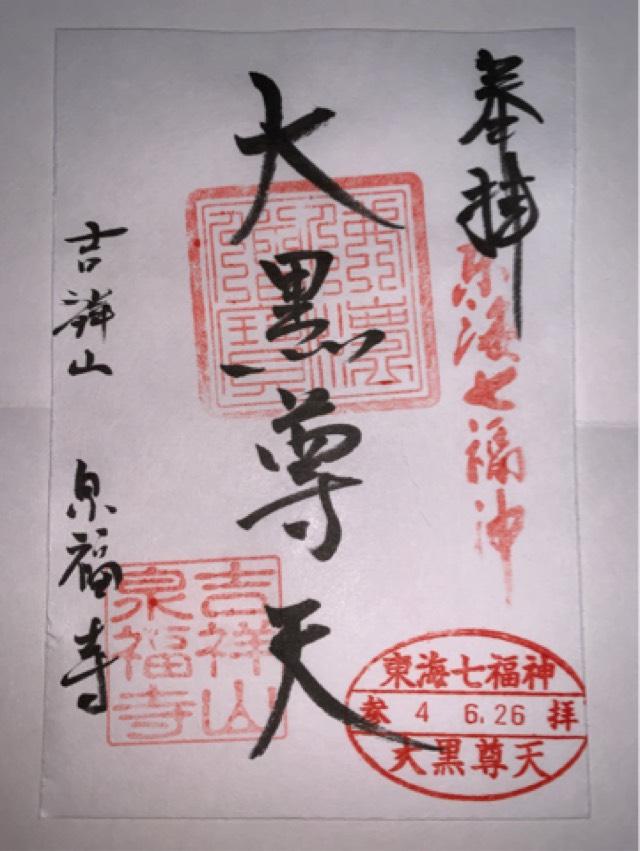 奉拝
東海七福神
大黒尊天
吉祥山
泉福寺
吉祥山
泉福寺
東海七福神
参 4 6.26 拝
大黒尊天